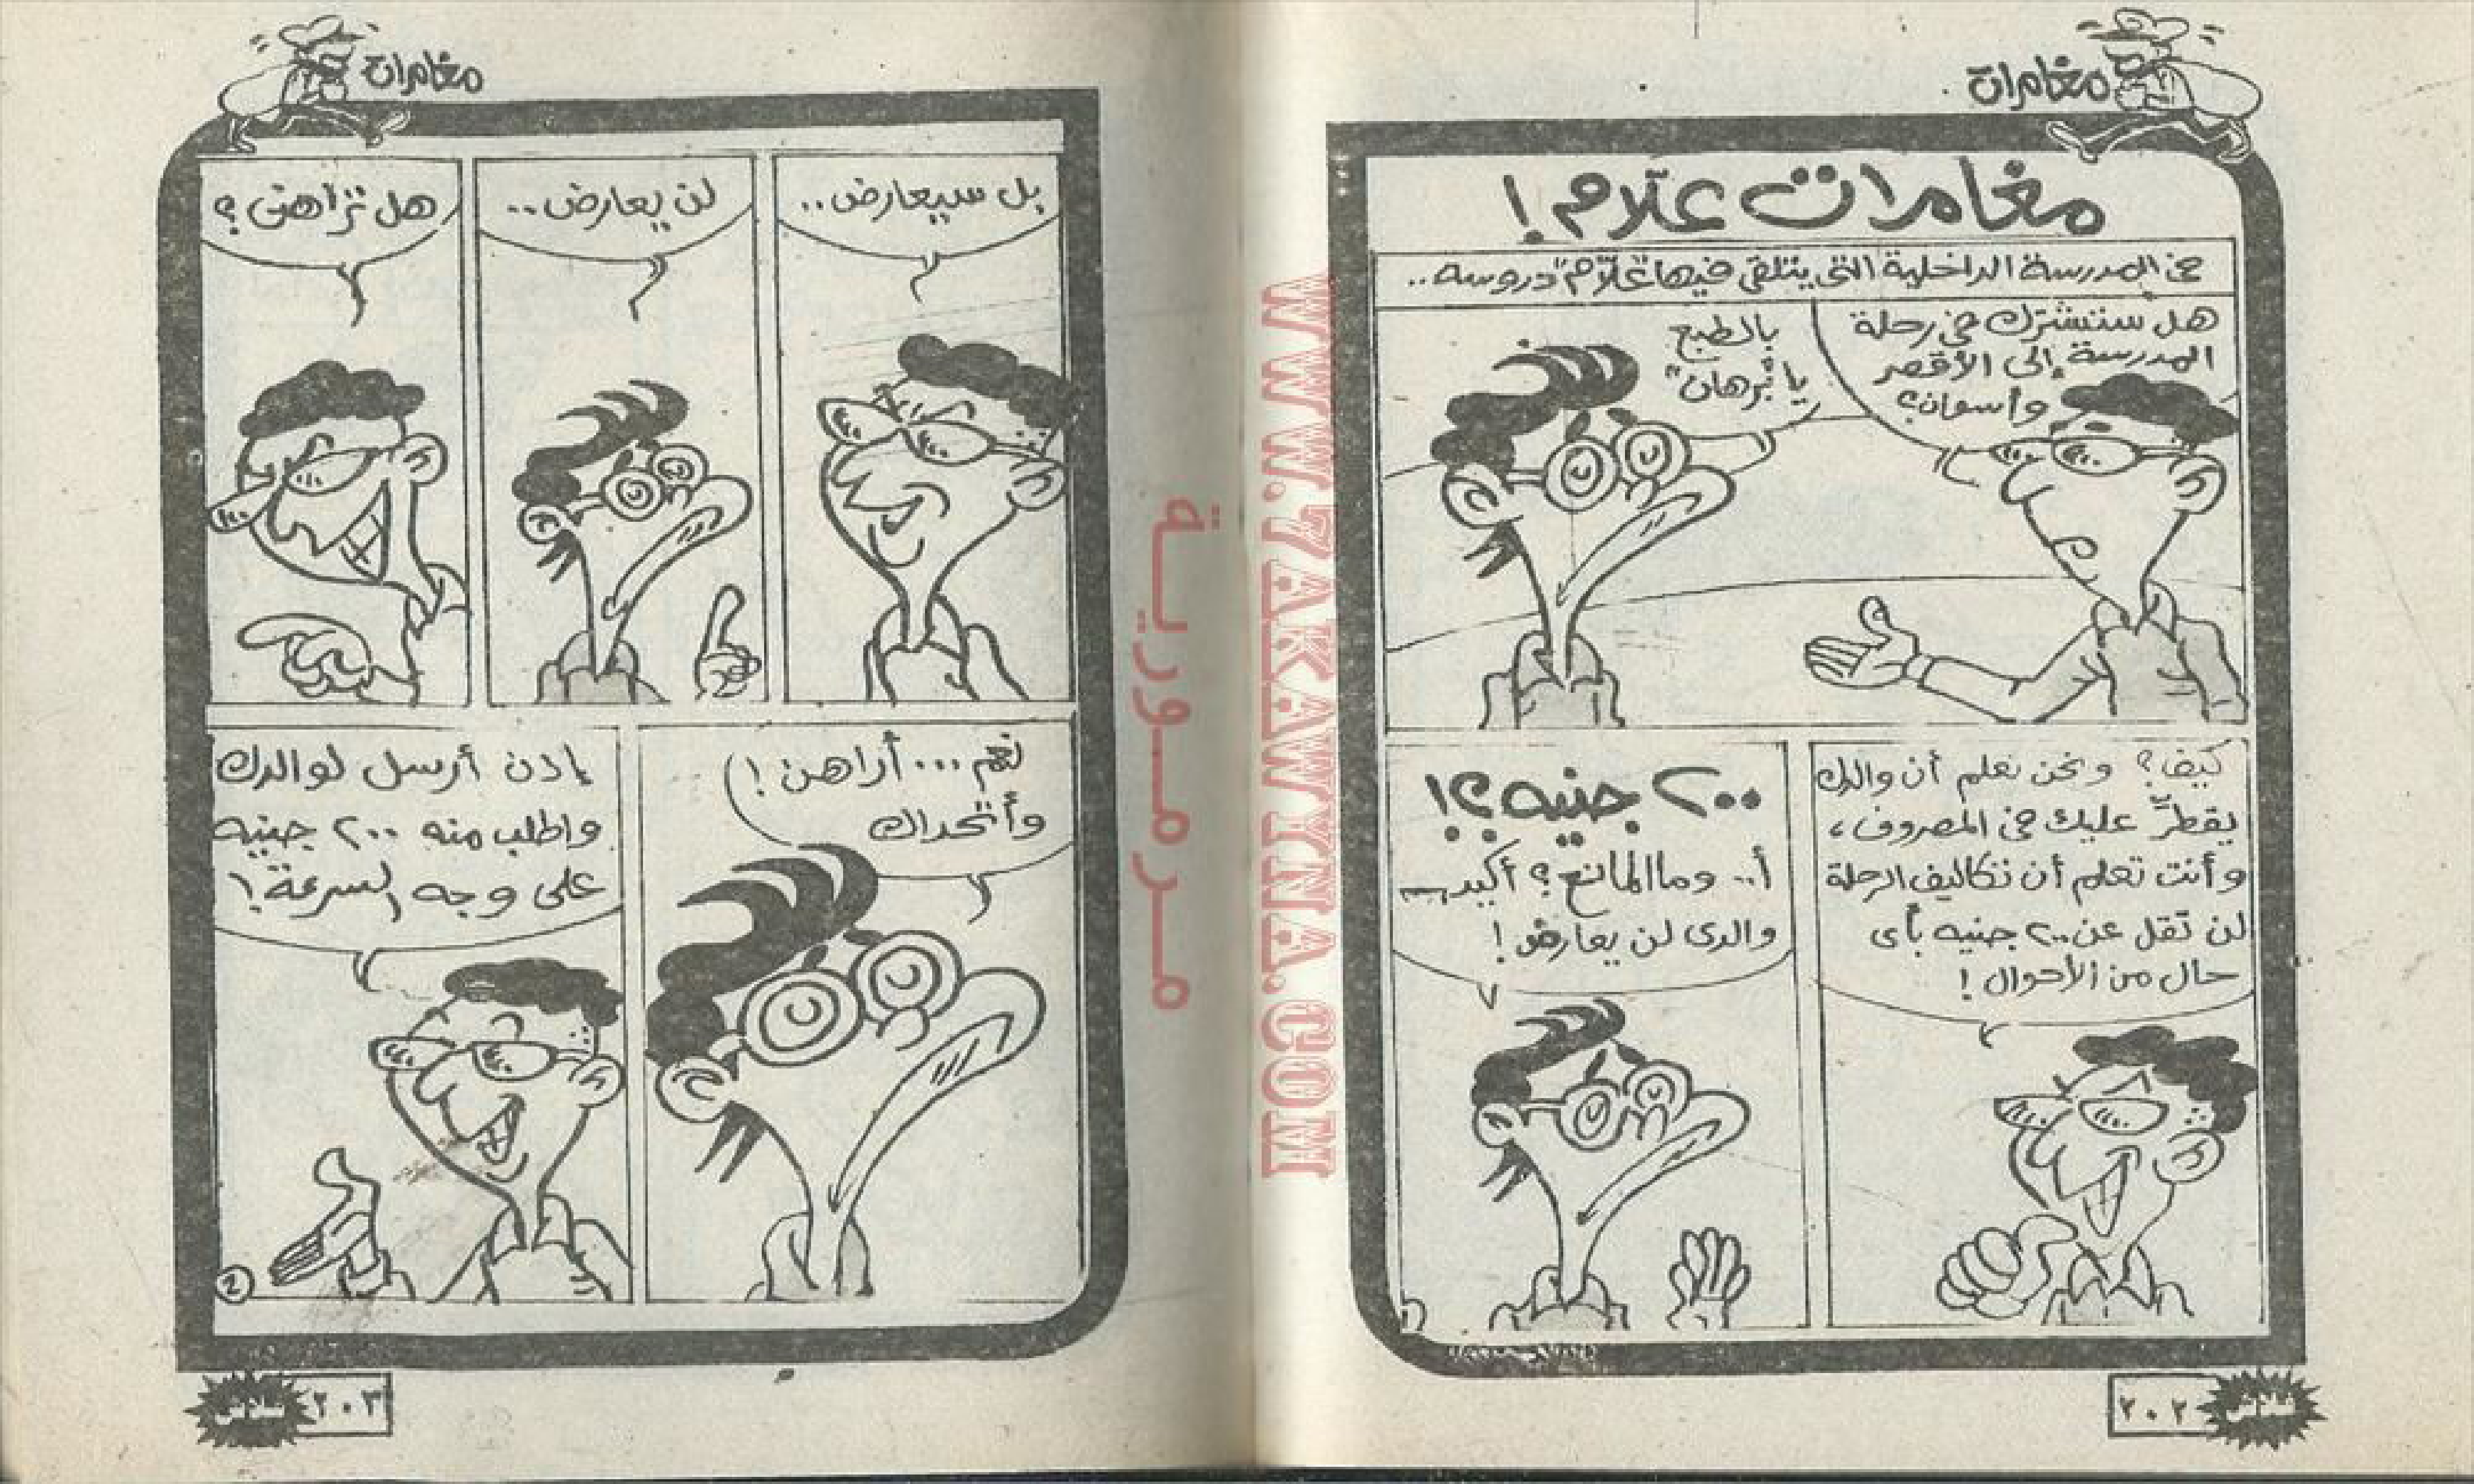 مغامرات
مغامرات علّام !
فى المدرسة الداخلية التى يتلقى فيها "علّام" دروسه..
هل ستشترك فى رحلة
المدرسة إلى الأقصر
وأسوان؟
بالطبع
يا "برهان"
كيف؟ ونحن نعلم أن والدك
يقطرّ عليك فى المصروف،
وأنت تعلم أن تكاليف الرحلة
لن تقل عن ٢٠٠ جنيه بأى
حال من الأحوال !
٢٠٠ جنيه؟!
أ.. وما المانع؟ أكيد
والدى لن يعارض !
٢٠٢
WWW.7AKAWINA.COM
مرمورية
مغامرات
بل سيعارض..
لن يعارض..
هل تراهن؟
نعم... أراهن !
وأتحداك
إذن أرسل لوالدك
واطلب منه ٢٠٠ جنيه
على وجه السرعة !
2
٢٠٣